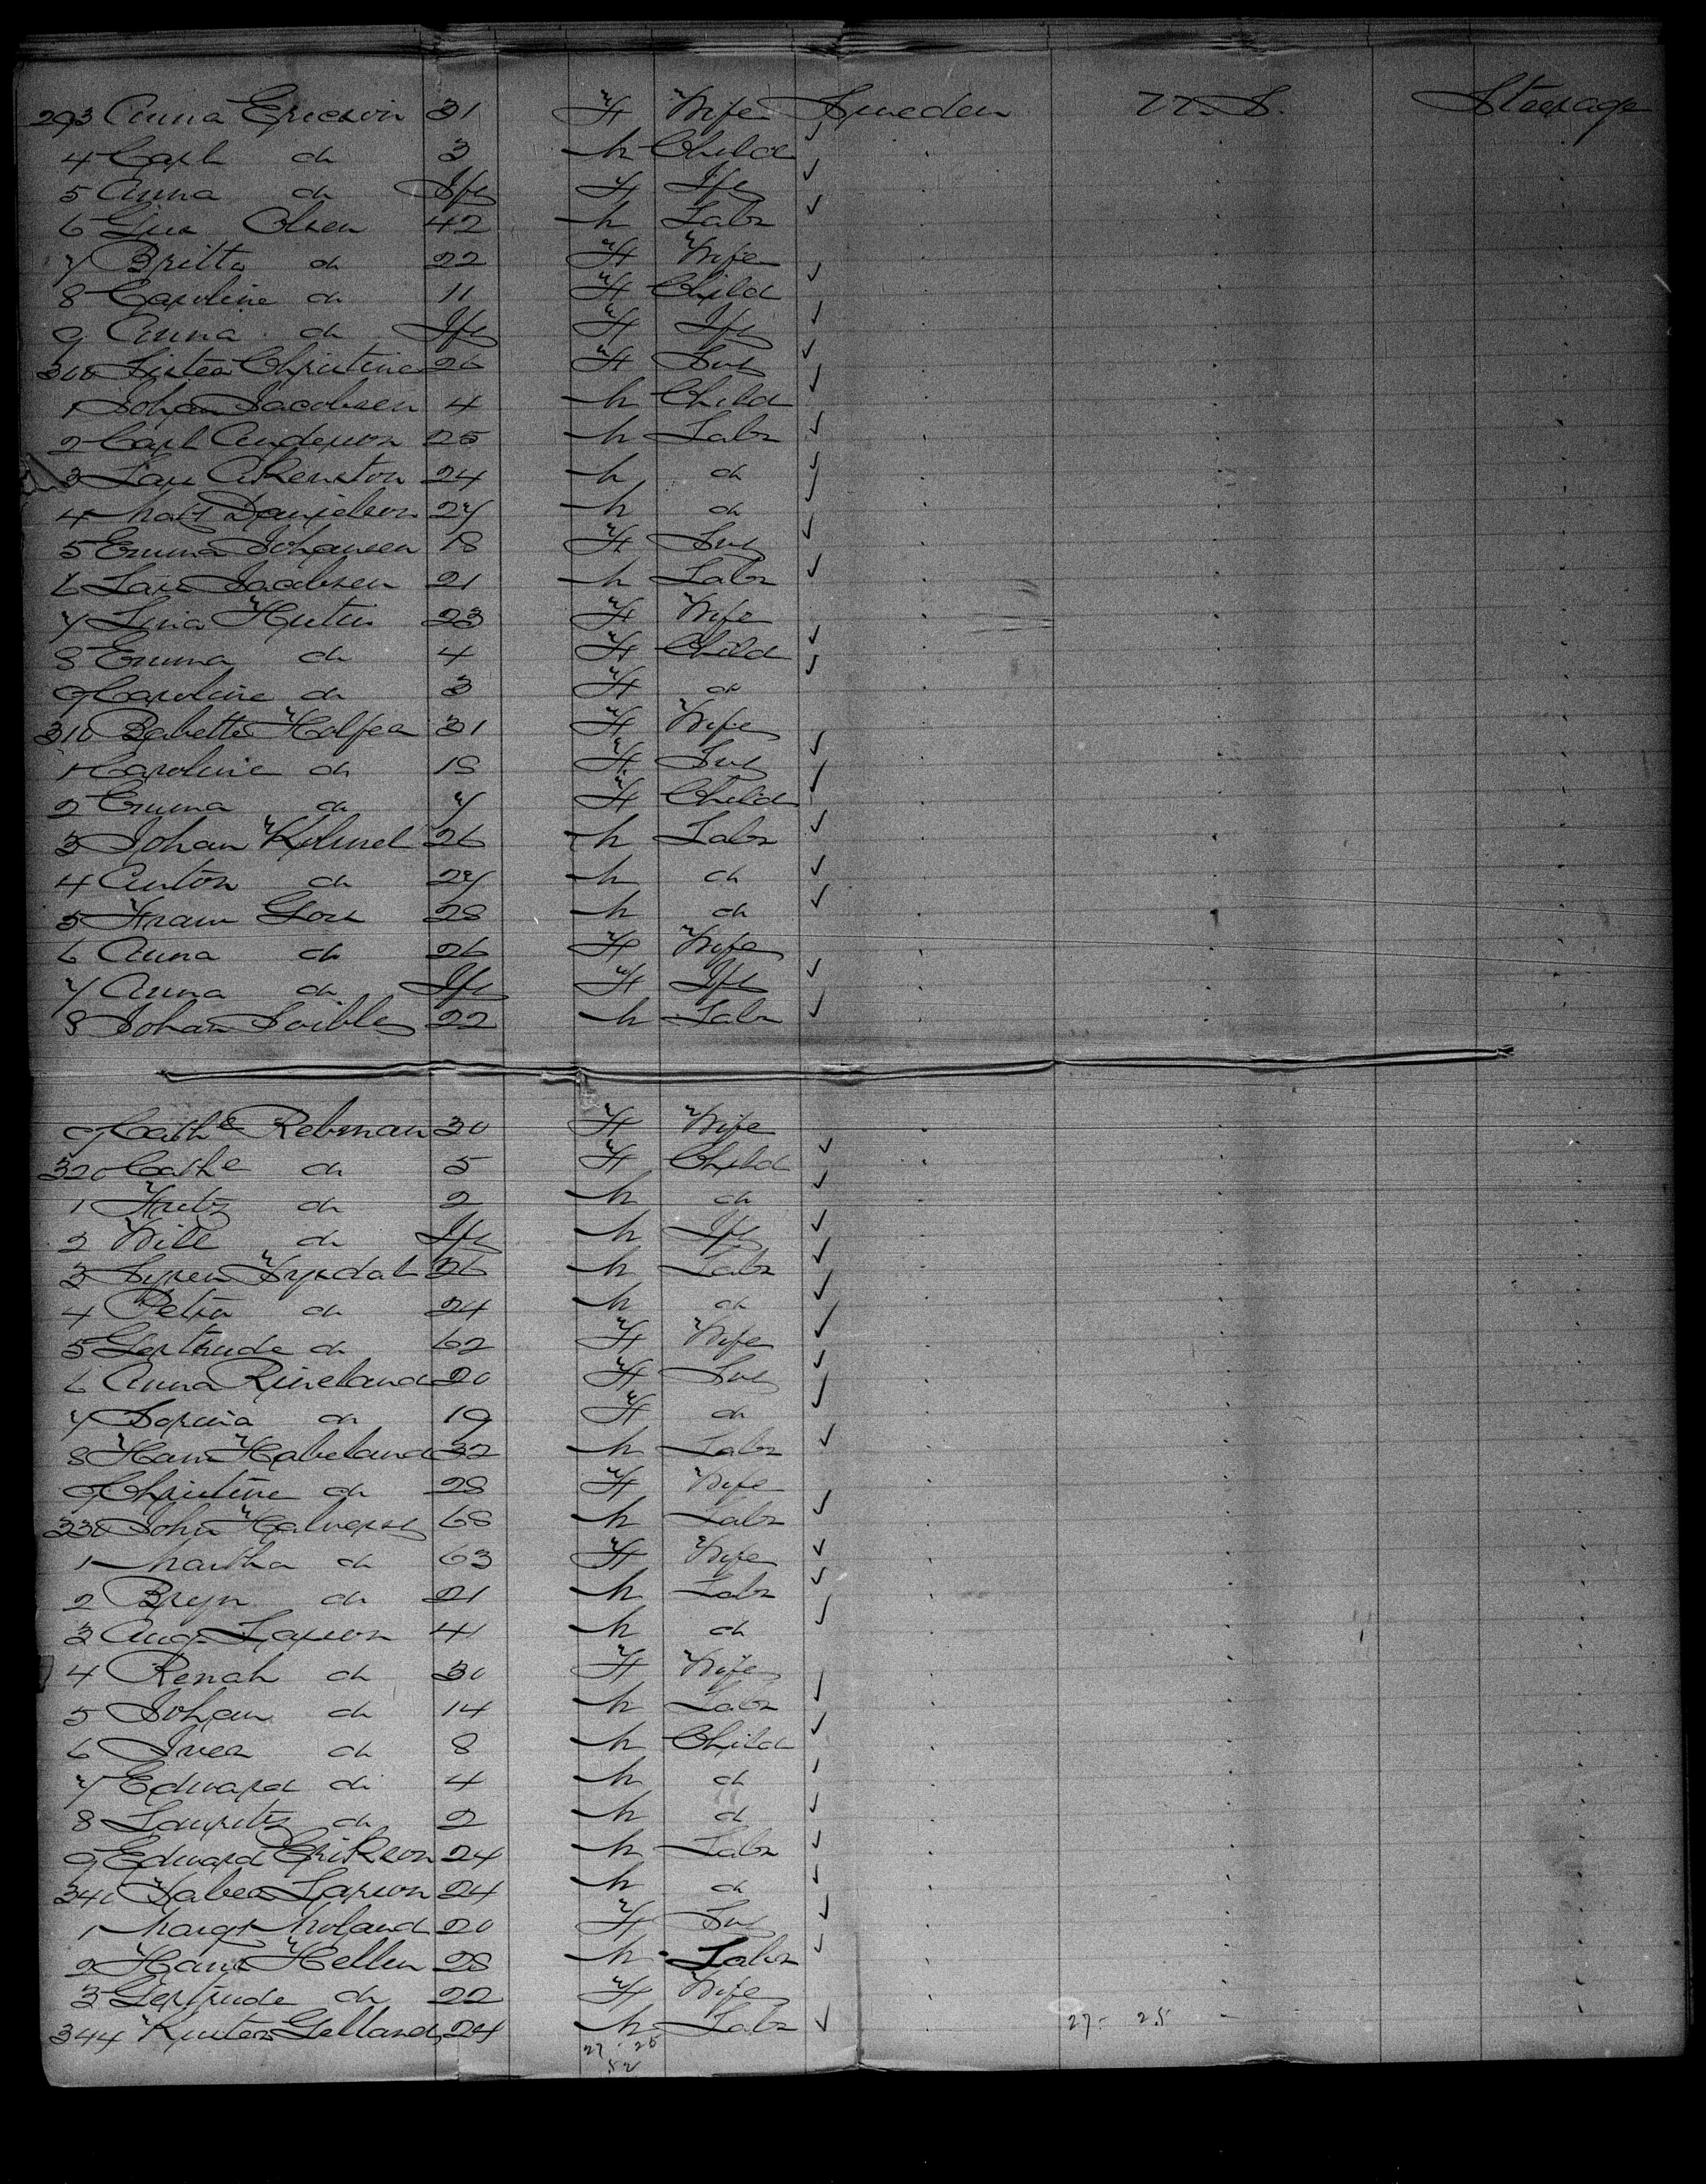 293 Anna Ericson 31 F Wife Sweden U.S. Steerage
4 Carl do 3 M Child
5 Anna do Inf F Inf
6 Olsen 42 M Labr
7 Britta do 22 F Wife
8 Caroline do 11 F Child
9 Anna do Inf F Inf
300 Christine 26 F Svt
1 Johan Jacobsen 4 M Child
2 Carl Anderson 25 M Labr
3 Lars 24 M do
4 Mats Danielson 27 M do
5 Emma Johansen 18 F Svt
6 Lars Jacobsen 21 M Labr
7 Lina 23 F Wife
8 Emma do 4 F Child
9 Caroline do 3 F do
310 Babette 31 F Wife
1 Caroline do 18 F Svt
2 Emma do 7 F Child
3 Johan 26 M Labr
4 Anton do 27 M do
5 28 M do
6 Anna do 26 F Wife
7 Anna do Inf F Inf
8 Johan 22 M Labr
9 Cathe Rebman 30 F Wife
320 Cathe do 5 F Child
1 Fritz do 2 M do
2 Will do Inf M Inf
3 26 M Labr
4 do 24 M do
5 Gertrude do 62 F Wife
6 Anna Rineland 20 F Svt
7 do 19 F do
8 Hans Habeland 32 M Labr
9 Christine do 28 F Wife
330 John 68 M Labr
1 Martha do 63 F Wife
2 do 21 M Labr
3 Aug. Larson 41 M do
4 do 30 F Wife
5 Johan do 14 M Labr
6 Iver do 8 M Child
7 Edward do 4 M do
8 Lauritz do 2 M do
9 Edward Erikson 24 M Labr
340 Larson 24 M do
1 Margt 20 F Svt
2 Hans 28 M Labr
3 Gertrude do 22 F Wife
344 24 M Labr 27 - 25
27 - 25
52